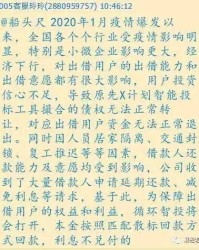 005客服玲玲(2880959757) 10:46:12
@船头尺 2020年1月疫情爆发以
来，全国各个个行业受疫情影响明
显，特别是小微企业影响更大，经
济下行，对出借用户的出借能力和
出借意愿都有很大影响，用户投资
信心不足，导致原先X计划智能投
标工具撮合的债权无法正常转
让，对应出借用户资金无法正常退
出。同时因人员居家隔离、交通封
锁、复工推迟等等因素，借款人还
款能力及意愿均受到影响，公司收
到了大量借款人申请延期还款、减
免利息等请求。基于此，为了保障出
借用户的权益和利益，循环智投将
会打开，本金按照匹配散标回款方
式回款，利息不兑付的